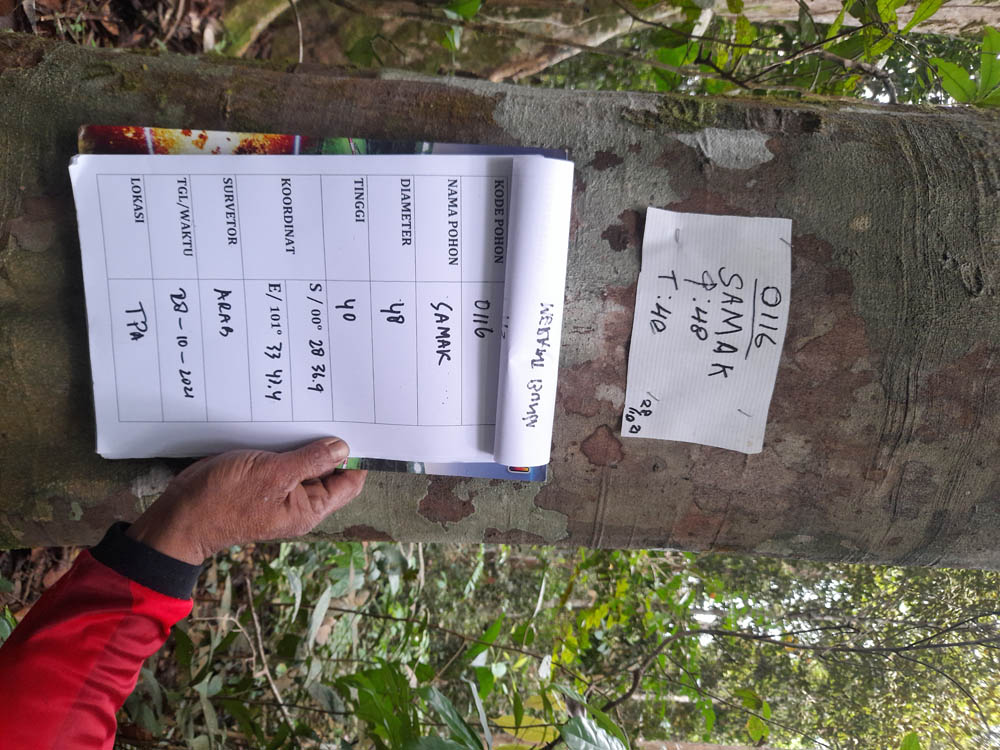 0116
SAMAK
φ:48
T:40
28/10 21
KODE POHON 0116
NAMA POHON SAMAK
DIAMETER 48
TINGGI 40
KOORDINAT S / 00° 28 36.9
E/ 101° 33 43.4
SURVETOR ARAB
TGL/WAKTU 28-10-2021
LOKASI TPA